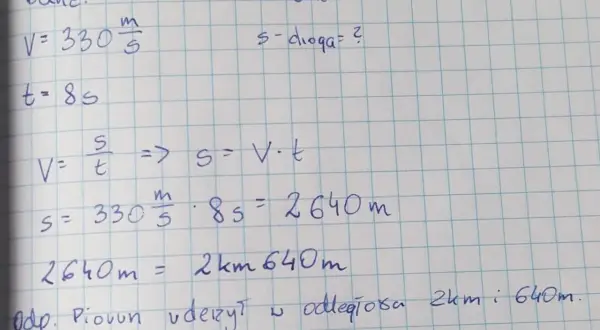 dane:
V = 330 m/s s - droga = ?
t = 8s
V = s/t => s = V · t
s = 330 m/s · 8s = 2640m
2640m = 2km 640m
Odp. Piorun uderzył w odległości 2km i 640m.